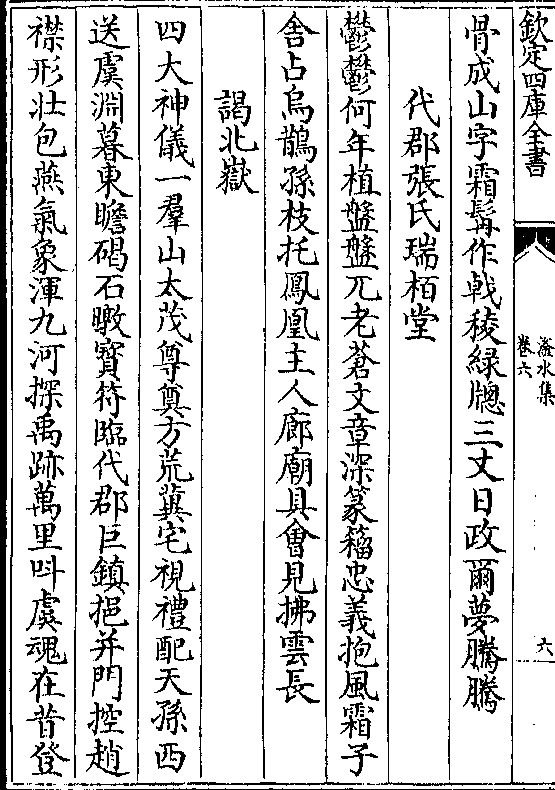 欽定四庫全書
滏水集
卷六
六
骨成山字霜髯作㦸稜緑牕三丈日政爾夢騰騰
代郡張氏瑞栢堂
鬱鬱何年植盤盤兀老蒼文章深篆籀忠義抱風霜子
舍占烏鵲孫枝托鳳凰主人廊廟具會見拂雲長
謁北嶽
四大神儀一羣山太茂尊奠方荒冀宅視禮配天孫西
送虞淵暮東瞻碣石暾寳符臨代郡巨鎮挹并門控趙
襟形壯包燕氣象渾九河探禹跡萬里呌虞魂在昔登